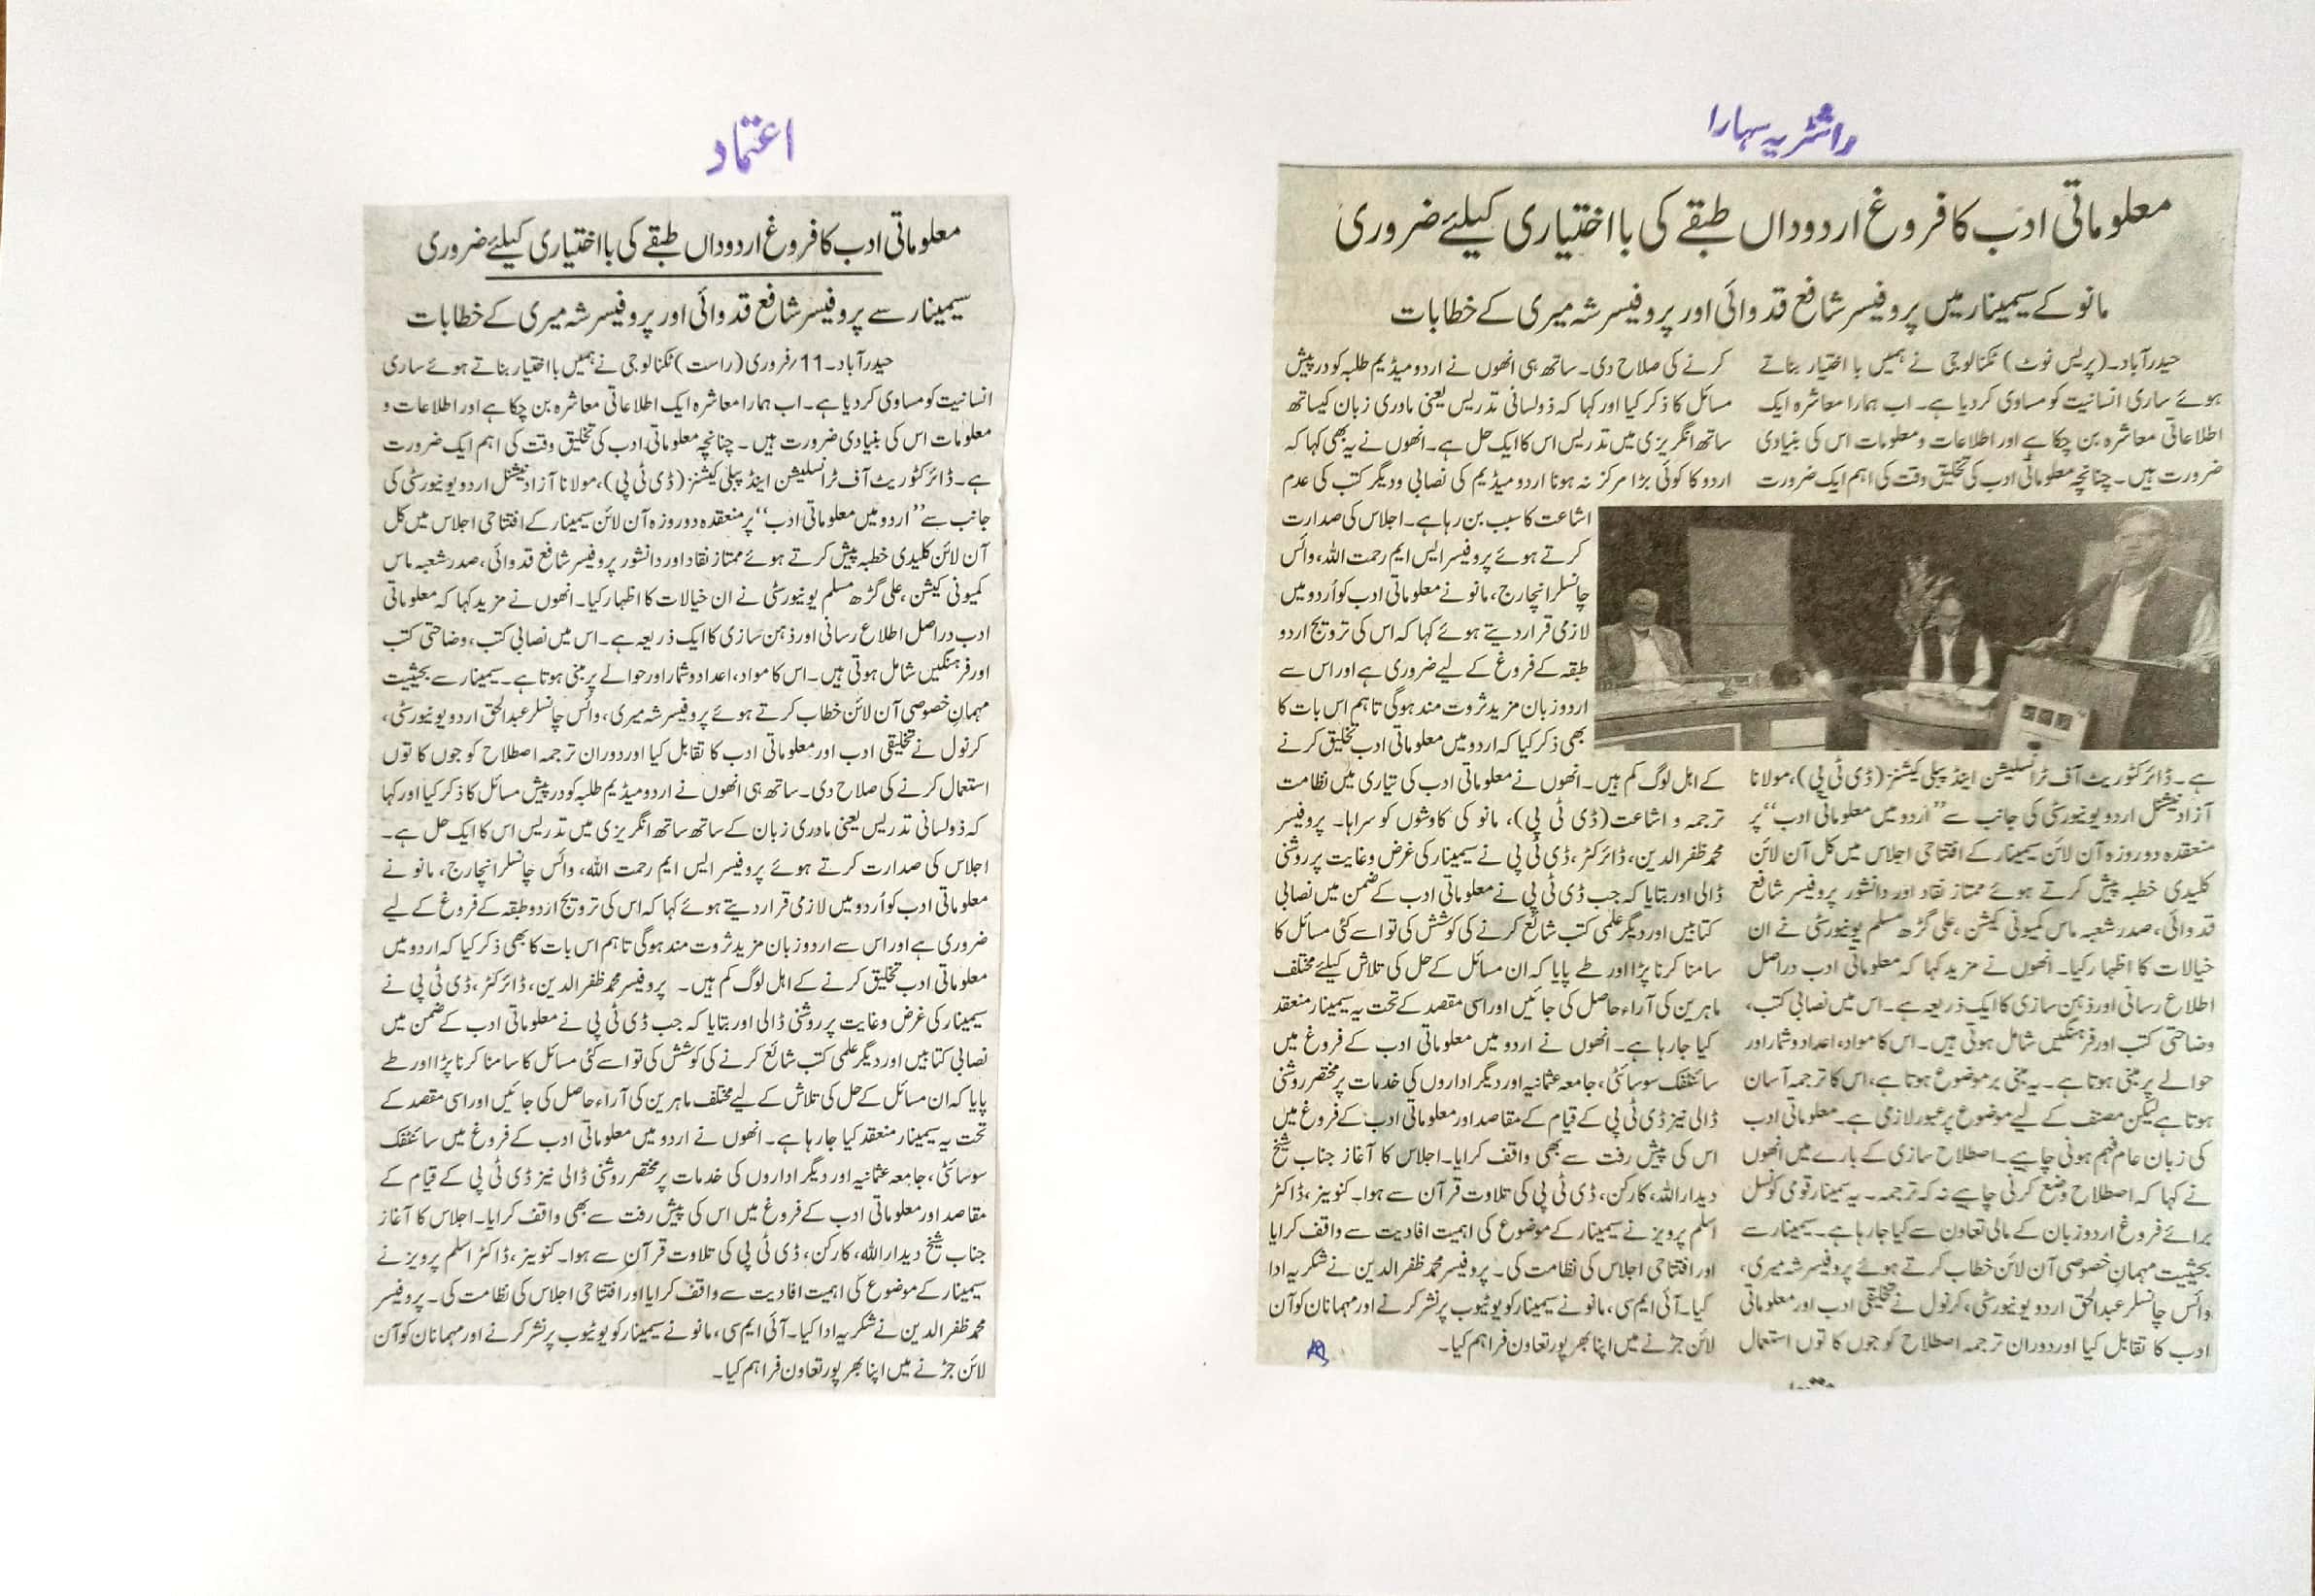 راشٹریہ سہارا
معلوماتی ادب کا فروغ اردوداں طبقے کی بااختیاری کیلئے ضروری
مانو کے سیمینار میں پروفیسر شافع قدوائی اور پروفیسر شہ میری کے خطابات
حیدرآباد۔ (پریس نوٹ) ٹکنالوجی نے ہمیں با اختیار بناتے
ہوئے ساری انسانیت کو مساوی کردیا ہے۔ اب ہمارا معاشرہ ایک
اطلاعاتی معاشرہ بن چکا ہے اور اطلاعات و معلومات اس کی بنیادی
ضرورت ہیں۔ چنانچہ معلوماتی ادب کی تخلیق وقت کی اہم ایک ضرورت
ہے۔ ڈائرکٹوریٹ آف ٹرانسلیشن اینڈ پبلی کیشنز (ڈی ٹی پی)، مولانا
آزاد نیشنل اردو یونیورسٹی کی جانب سے ”اردو میں معلوماتی ادب“ پر
منعقدہ دو روزہ آن لائن سیمینار کے افتتاحی اجلاس میں کل آن لائن
کلیدی خطبہ پیش کرتے ہوئے ممتاز نقاد اور دانشور پروفیسر شافع
قدوائی، صدر شعبہ ماس کمیونی کیشن، علی گڑھ مسلم یونیورسٹی نے ان
خیالات کا اظہار کیا۔ انھوں نے مزید کہا کہ معلوماتی ادب دراصل
اطلاع رسانی اور ذہن سازی کا ایک ذریعہ ہے۔ اس میں نصابی کتب،
وضاحتی کتب اور فرہنگیں شامل ہوتی ہیں۔ اس کا مواد، اعداد و شمار اور
حوالے پر مبنی ہوتا ہے۔ یہ مبنی بر موضوع ہوتا ہے، اس کا ترجمہ آسان
ہوتا ہے لیکن مصنف کے لیے موضوع پر عبور لازمی ہے۔ معلوماتی ادب
کی زبان عام فہم ہونی چاہیے۔ اصطلاح سازی کے بارے میں انھوں
نے کہا کہ اصطلاح وضع کرنی چاہیے نہ کہ ترجمہ۔ یہ سمینار قومی کونسل
برائے فروغ اردو زبان کے مالی تعاون سے کیا جارہا ہے۔ سیمینار سے
بحیثیت مہمان خصوصی آن لائن خطاب کرتے ہوئے پروفیسر شہ میری،
وائس چانسلر عبدالحق اردو یونیورسٹی، کرنول نے تخلیقی ادب اور معلوماتی
ادب کا تقابل کیا اور دوران ترجمہ اصطلاح کو جوں کا توں استعمال
کرنے کی صلاح دی۔ ساتھ ہی انھوں نے اردو میڈیم طلبہ کو درپیش
مسائل کا ذکر کیا اور کہا کہ ذولسانی تدریس یعنی مادری زبان کیساتھ
ساتھ انگریزی میں تدریس اس کا ایک حل ہے۔ انھوں نے یہ بھی کہا کہ
اردو کا کوئی بڑا مرکز نہ ہونا اردو میڈیم کی نصابی و دیگر کتب کی عدم
اشاعت کا سبب بن رہا ہے۔ اجلاس کی صدارت
کرتے ہوئے پروفیسر ایس ایم رحمت اللہ، وائس
چانسلر انچارج، مانو نے معلوماتی ادب کو اُردو میں
لازمی قرار دیتے ہوئے کہا کہ اس کی ترویج اردو
طبقہ کے فروغ کے لیے ضروری ہے اور اس سے
اردو زبان مزید ثروت مند ہوگی تاہم اس بات کا
بھی ذکر کیا کہ اردو میں معلوماتی ادب تخلیق کرنے
کے اہل لوگ کم ہیں۔ انھوں نے معلوماتی ادب کی تیاری میں نظامت
ترجمہ و اشاعت (ڈی ٹی پی)، مانو کی کاوشوں کو سراہا۔ پروفیسر
محمد ظفرالدین، ڈائرکٹر، ڈی ٹی پی نے سیمینار کی غرض وغایت پر روشنی
ڈالی اور بتایا کہ جب ڈی ٹی پی نے معلوماتی ادب کے ضمن میں نصابی
کتابیں اور دیگر علمی کتب شائع کرنے کی کوشش کی تو اسے کئی مسائل کا
سامنا کرنا پڑا اور طے پایا کہ ان مسائل کے حل کی تلاش کیلئے مختلف
ماہرین کی آراء حاصل کی جائیں اور اسی مقصد کے تحت یہ سیمینار منعقد
کیا جارہا ہے۔ انھوں نے اردو میں معلوماتی ادب کے فروغ میں
سائنٹفک سوسائٹی، جامعہ عثمانیہ اور دیگر اداروں کی خدمات پر مختصر روشنی
ڈالی نیز ڈی ٹی پی کے قیام کے مقاصد اور معلوماتی ادب کے فروغ میں
اس کی پیش رفت سے بھی واقف کرایا۔ اجلاس کا آغاز جناب شیخ
دیدار اللہ، کارکن، ڈی ٹی پی کی تلاوت قرآن سے ہوا۔ کنوینر، ڈاکٹر
اسلم پرویز نے سیمینار کے موضوع کی اہمیت افادیت سے واقف کرایا
اور افتتاحی اجلاس کی نظامت کی۔ پروفیسر محمد ظفرالدین نے شکریہ ادا
کیا۔ آئی ایم سی، مانو نے سیمینار کو یوٹیوب پر نشر کرنے اور مہمانان کو آن
لائن جڑنے میں اپنا بھر پور تعاون فراہم کیا۔
اعتماد
معلوماتی ادب کا فروغ اردوداں طبقے کی بااختیاری کیلئے ضروری
سیمینار سے پروفیسر شافع قدوائی اور پروفیسر شہ میری کے خطابات
حیدرآباد۔ 11؍ فروری (راست) ٹکنالوجی نے ہمیں بااختیار بناتے ہوئے ساری
انسانیت کو مساوی کردیا ہے۔ اب ہمارا معاشرہ ایک اطلاعاتی معاشرہ بن چکا ہے اور اطلاعات و
معلومات اس کی بنیادی ضرورت ہیں۔ چنانچہ معلوماتی ادب کی تخلیق وقت کی اہم ایک ضرورت
ہے۔ ڈائرکٹوریٹ آف ٹرانسلیشن اینڈ پبلی کیشنز (ڈی ٹی پی)، مولانا آزاد نیشنل اردو یونیورسٹی کی
جانب سے ”اردو میں معلوماتی ادب“ پر منعقدہ دو روزہ آن لائن سیمینار کے افتتاحی اجلاس میں کل
آن لائن کلیدی خطبہ پیش کرتے ہوئے ممتاز نقاد اور دانشور پروفیسر شافع قدوائی، صدر شعبہ ماس
کمیونی کیشن، علی گڑھ مسلم یونیورسٹی نے ان خیالات کا اظہار کیا۔ انھوں نے مزید کہا کہ معلوماتی
ادب دراصل اطلاع رسانی اور ذہن سازی کا ایک ذریعہ ہے۔ اس میں نصابی کتب، وضاحتی کتب
اور فرہنگیں شامل ہوتی ہیں۔ اس کا مواد، اعداد و شمار اور حوالے پر مبنی ہوتا ہے۔ سیمینار سے بحیثیت
مہمان خصوصی آن لائن خطاب کرتے ہوئے پروفیسر شہ میری، وائس چانسلر عبدالحق اردو یونیورسٹی،
کرنول نے تخلیقی ادب اور معلوماتی ادب کا تقابل کیا اور دوران ترجمہ اصطلاح کو جوں کا توں
استعمال کرنے کی صلاح دی۔ ساتھ ہی انھوں نے اردو میڈیم طلبہ کو درپیش مسائل کا ذکر کیا اور کہا
کہ ذولسانی تدریس یعنی مادری زبان کے ساتھ ساتھ انگریزی میں تدریس اس کا ایک حل ہے۔
اجلاس کی صدارت کرتے ہوئے پروفیسر ایس ایم رحمت اللہ، وائس چانسلر انچارج، مانو نے
معلوماتی ادب کو اُردو میں لازمی قرار دیتے ہوئے کہا کہ اس کی ترویج اردو طبقہ کے فروغ کے لیے
ضروری ہے اور اس سے اردو زبان مزید ثروت مند ہوگی تاہم اس بات کا بھی ذکر کیا کہ اردو میں
معلوماتی ادب تخلیق کرنے کے اہل لوگ کم ہیں۔ پروفیسر محمد ظفرالدین، ڈائرکٹر، ڈی ٹی پی نے
سیمینار کی غرض وغایت پر روشنی ڈالی اور بتایا کہ جب ڈی ٹی پی نے معلوماتی ادب کے ضمن میں
نصابی کتابیں اور دیگر علمی کتب شائع کرنے کی کوشش کی تو اسے کئی مسائل کا سامنا کرنا پڑا اور طے
پایا کہ ان مسائل کے حل کی تلاش کے لیے مختلف ماہرین کی آراء حاصل کی جائیں اور اسی مقصد کے
تحت یہ سیمینار منعقد کیا جارہا ہے۔ انھوں نے اردو میں معلوماتی ادب کے فروغ میں سائنٹفک
سوسائٹی، جامعہ عثمانیہ اور دیگر اداروں کی خدمات پر مختصر روشنی ڈالی نیز ڈی ٹی پی کے قیام کے
مقاصد اور معلوماتی ادب کے فروغ میں اس کی پیش رفت سے بھی واقف کرایا۔ اجلاس کا آغاز
جناب شیخ دیدار اللہ، کارکن، ڈی ٹی پی کی تلاوت قرآن سے ہوا۔ کنوینر، ڈاکٹر اسلم پرویز نے
سیمینار کے موضوع کی اہمیت افادیت سے واقف کرایا اور افتتاحی اجلاس کی نظامت کی۔ پروفیسر
محمد ظفرالدین نے شکریہ ادا کیا۔ آئی ایم سی، مانو نے سیمینار کو یوٹیوب پر نشر کرنے اور مہمانان کو آن
لائن جڑنے میں اپنا بھر پور تعاون فراہم کیا۔